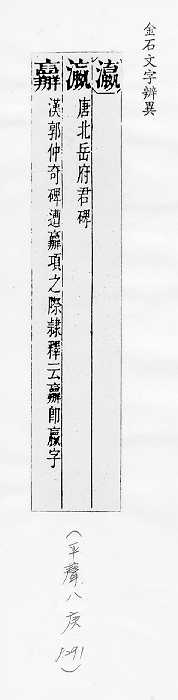 金石文字辨異
瀛
瀛 唐北岳府君碑
漢郭仲奇碑遭項之際隸釋云即嬴字
(平聲八庚 291)